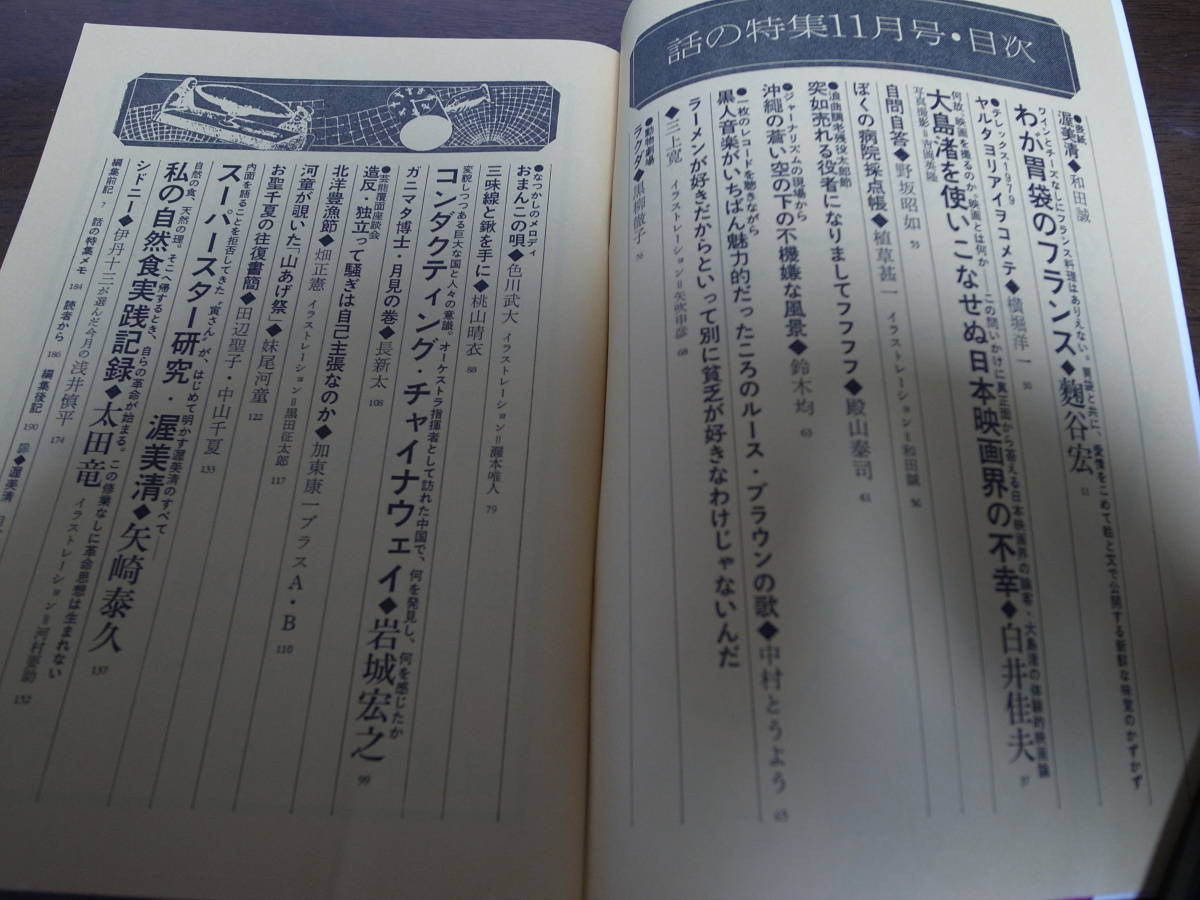 話の特集11月号・目次
●表紙
渥美清◆和田誠
ワインとチーズなしにフランス料理はありえない。胃袋と共に、愛情をこめて絵と文で公開する新鮮な味覚のかずかず
わが胃袋のフランス◆麴谷宏 11
●テレックス-1979
ヤルタヨリアイヲコメテ◆横堀洋一 50
何故、映画を撮るのか、映画とは何か この問いかけに真正面から答える日本映画界の論客・大島渚の体験的映画論
大島渚を使いこなせぬ日本映画界の不幸◆白井佳夫 37
写真撮影=吉岡英隆
自問自答◆野坂昭如 53
ぼくの病院採点帳◆植草甚一 イラストレーション=和田誠 56
●浪曲調老残役太郎節
突如売れる役者になりましてフフフフ◆殿山泰司 61
●ジャーナリズムの現場から
沖縄の蒼い空の下の不機嫌な風景◆鈴木均 63
●一枚のレコードを聴きながら
黒人音楽がいちばん魅力的だったころのルース・ブラウンの歌◆中村とうよう 65
ラーメンが好きだからといって別に貧乏が好きなわけじゃないんだ
◆三上寛 イラストレーション=矢吹申彦 68
●動物劇場
ラクダ◆黒柳徹子 76
●なつかしのメロディ
おまんこの唄◆色川武大 イラストレーション=灘本唯人 79
三味線と鍬を手に◆桃山晴衣 88
変貌しつつある巨大な国と人々の意識。オーケストラ指揮者として訪れた中国で、何を発見し、何を感じたか
コンダクティング・チャイナウェイ◆岩城宏之 99
ガニマタ博士・月見の巻◆長新太 108
●芸能覆面座談会
造反・独立って騒ぎは自己主張なのか◆加東康一プラスA・B 110
北洋豊漁節◆畑正憲 イラストレーション=黒田征太郎 117
河童が覗いた「山あげ祭」◆妹尾河童 122
お聖千夏の往復書簡◆田辺聖子・中山千夏 133
内面を語ることを拒否してきた“寅さん”が、はじめて明かす渥美清のすべて
スーパースター研究・渥美清◆矢崎泰久 137
自然の食、天然の理。そこへ帰するとき、自らの革命が始まる。この修業なしに革命思想は生まれない
私の自然食実践記録◆太田竜 イラストレーション=河村要助 152
シドニー◆伊丹十三が選んだ今月の浅井慎平 174
編集前記? 話の特集メモ 184 読者から 186 編集後記 190